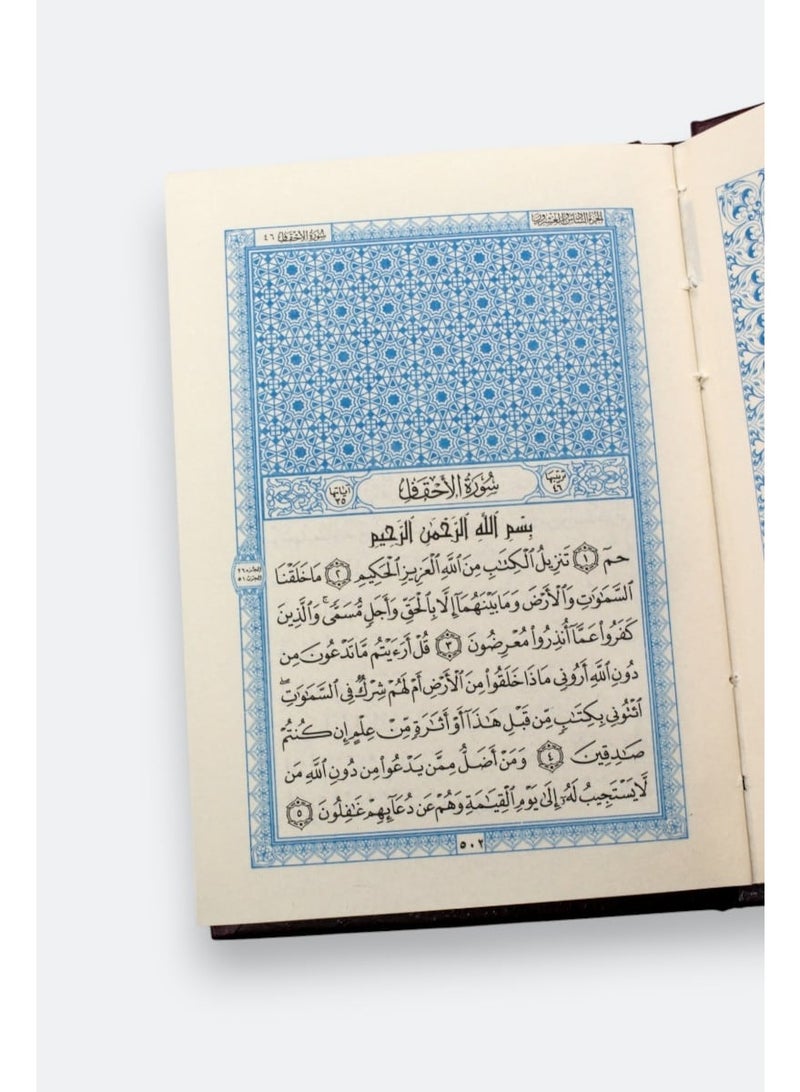 الجزء السادس والعشرون
سُورَةُ الأَحْقَافِ ٤٦
ترتيبها ٤٦
سُورَةُ الأَحْقَافِ
آياتها ٣٥
بِسْمِ اللَّهِ الرَّحْمَٰنِ الرَّحِيمِ
حمٓ ١ تَنزِيلُ الْكِتَابِ مِنَ اللَّهِ الْعَزِيزِ الْحَكِيمِ ٢ مَا خَلَقْنَا
السَّمَاوَاتِ وَالْأَرْضَ وَمَا بَيْنَهُمَا إِلَّا بِالْحَقِّ وَأَجَلٍ مُّسَمًّى ۚ وَالَّذِينَ
كَفَرُوا عَمَّا أُنذِرُوا مُعْرِضُونَ ٣ قُلْ أَرَءَيْتُم مَّا تَدْعُونَ مِن
دُونِ اللَّهِ أَرُونِي مَاذَا خَلَقُوا مِنَ الْأَرْضِ أَمْ لَهُمْ شِرْكٌ فِي السَّمَاوَاتِ ۖ
ائْتُونِي بِكِتَابٍ مِّن قَبْلِ هَٰذَا أَوْ أَثَارَةٍ مِّنْ عِلْمٍ إِن كُنتُمْ
صَادِقِينَ ٤ وَمَنْ أَضَلُّ مِمَّن يَدْعُوا مِن دُونِ اللَّهِ مَن
لَّا يَسْتَجِيبُ لَهُ إِلَىٰ يَوْمِ الْقِيَامَةِ وَهُمْ عَن دُعَائِهِمْ غَافِلُونَ ٥
الجزء ٢٦
الحزب ٥١
٥٠٢